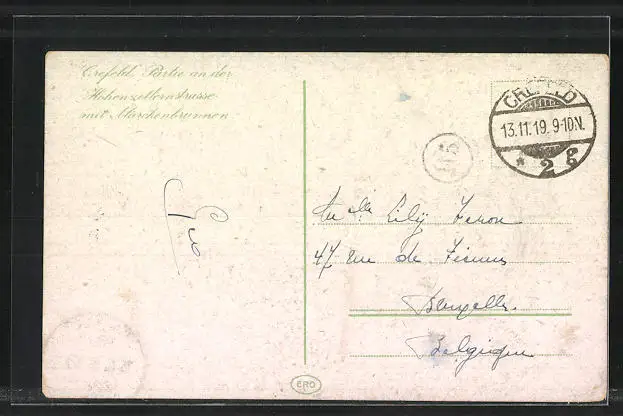 Crefeld, Partie an der
Hohenzollernstrasse
mit Märchenbrunnen
CREFELD
13.11.19. 9-10N.
* 2 g
Lily
47 rue de
Bruxelles.
Belgique
ERO